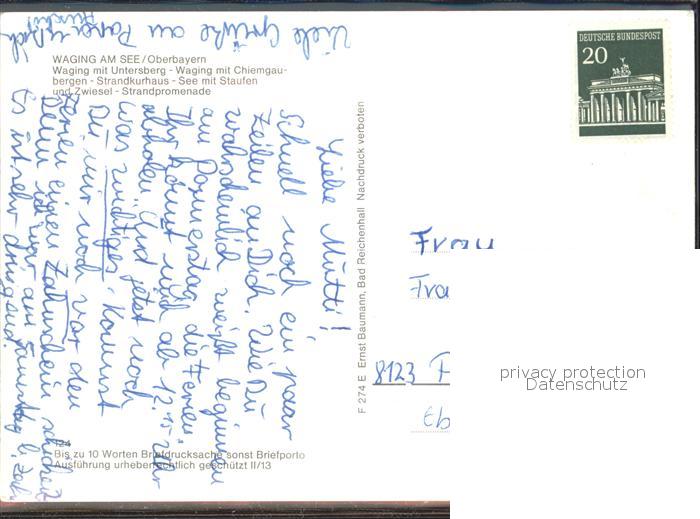 Viele Grüße an Papa
WAGING AM SEE/Oberbayern
Waging mit Untersberg - Waging mit Chiemgau-
bergen - Strandkurhaus - See mit Staufen
und Zwiesel - Strandpromenade
Liebe Mutti!
Schnell noch ein paar
Zeilen an Dich. Wie Du
wahrscheinlich weißt beginnen
am Donnerstag die Ferien.
Ihr könnt mich ab 12.15 Uhr
abholen. Und jetzt noch
was wichtiges. Kannst
Du mir noch vor den
Ferien einen Zahnschein schicken
Denn ich war am
Es ist sehr dringend
124
Bis zu 10 Worten Briefdrucksache sonst Briefporto
Ausführung urheberrechtlich geschützt II/13
F 274 E Ernst Baumann, Bad Reichenhall Nachdruck verboten
DEUTSCHE BUNDESPOST
20
Frau
Fra
8123 F
Eb
privacy protection
Datenschutz